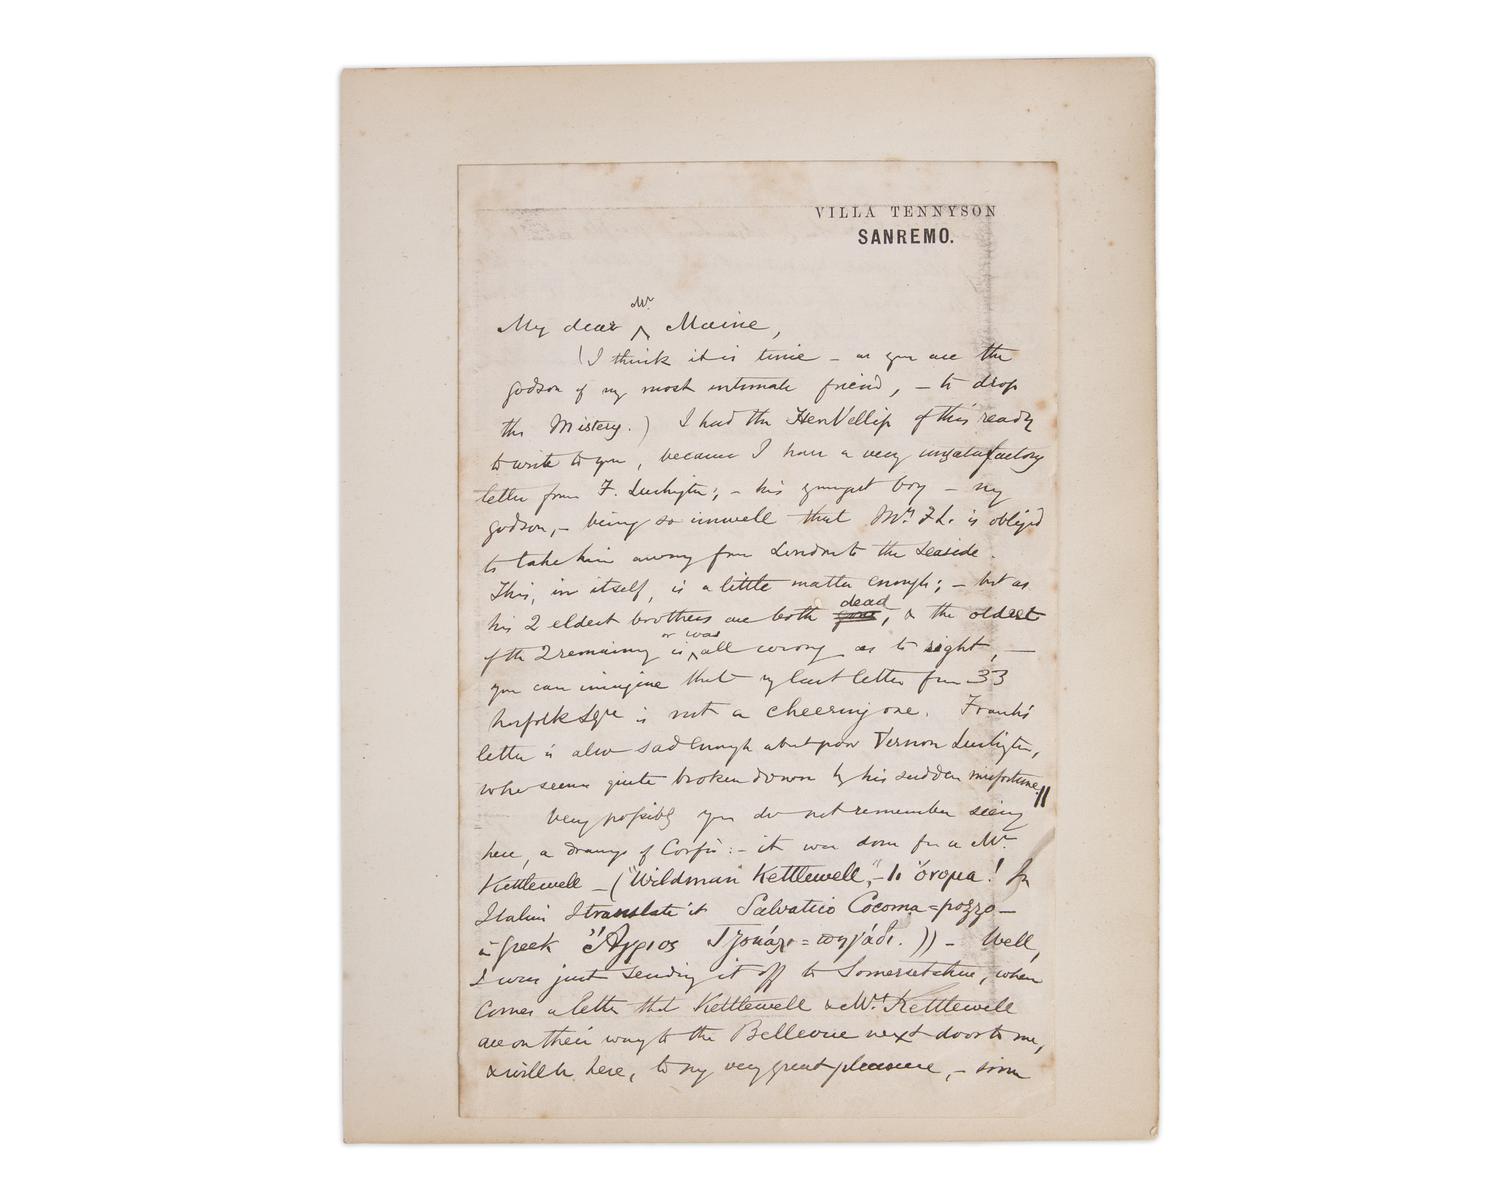 VILLA TENNYSON
SANREMO.
Mr
My dear ^ Maine,
(I think it is time – as you are the
godson of my most intimate friend, – to drop
the Mistery.) I had the HenVellip of this ready
to write to you, because I have a very unsatisfactory
letter from F. Lushington; – his youngest boy – my
godson, – being so unwell that Mrs. F.L. is obliged
to take him away from London to the seaside.
This, in itself, is a little matter enough; – but as
his 2 eldest brothers are both dead, & the oldest
of the 2 remaining is ^ or was all wrong as to sight, —
you can imagine that my last letter from 33
Norfolk Sqre is not a cheering one. Frank's
letter is also sad enough about poor Vernon Lushington,
who seems quite broken down by his sudden misfortune.
Very possibly you do not remember seeing
here, a drawing of Corfû: – it was done for a Mr.
Kettlewell – ("Wildman Kettlewell", – τὸ ὄνομα! In
Italian I translate it Salvatico Cocoma=pozzo –
in Greek "Ἄγριος Τζουκάλι=πηγάδι.)) – Well,
I was just sending it off to Somersetshire, when
comes a letter that Kettlewell & Mrs. Kettlewell
are on their way to the Bellevue next door to me,
& will be here, to my very great pleasure, – some